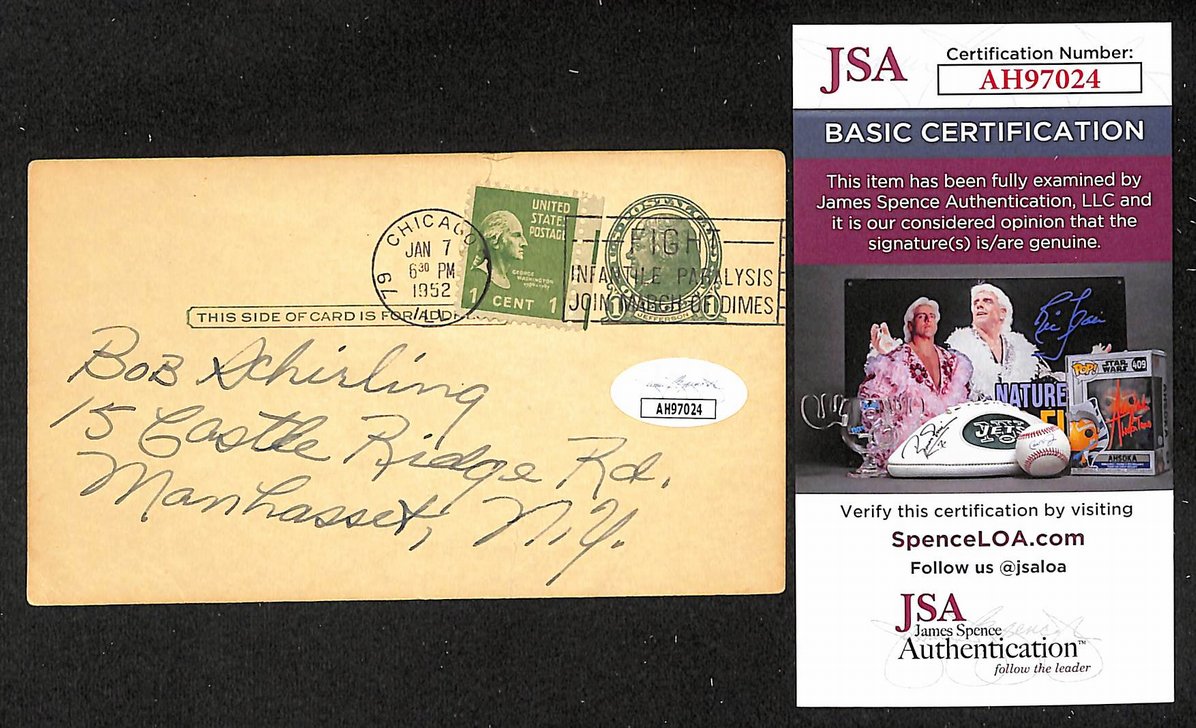 CHICAGO
JAN 7
6³⁰ PM
1952
ILL.
79
UNITED
STATES
POSTAGE
GEORGE
WASHINGTON
1 CENT 1
FIGHT
INFANTILE PARALYSIS
JOIN MARCH OF DIMES
1 1
JEFFERSON
THIS SIDE OF CARD IS FOR ADDRE
Bob Schirling
15 Castle Ridge Rd.
Manhasset, N.Y.
AH97024
JSA
Certification Number:
AH97024
BASIC CERTIFICATION
This item has been fully examined by
James Spence Authentication, LLC and
it is our considered opinion that the
signature(s) is/are genuine.
NATURE
JETS
POP!
STAR
WARS
409
AHSOKA
Verify this certification by visiting
SpenceLOA.com
Follow us @jsaloa
JSA
James Spence
Authentication™
follow the leader